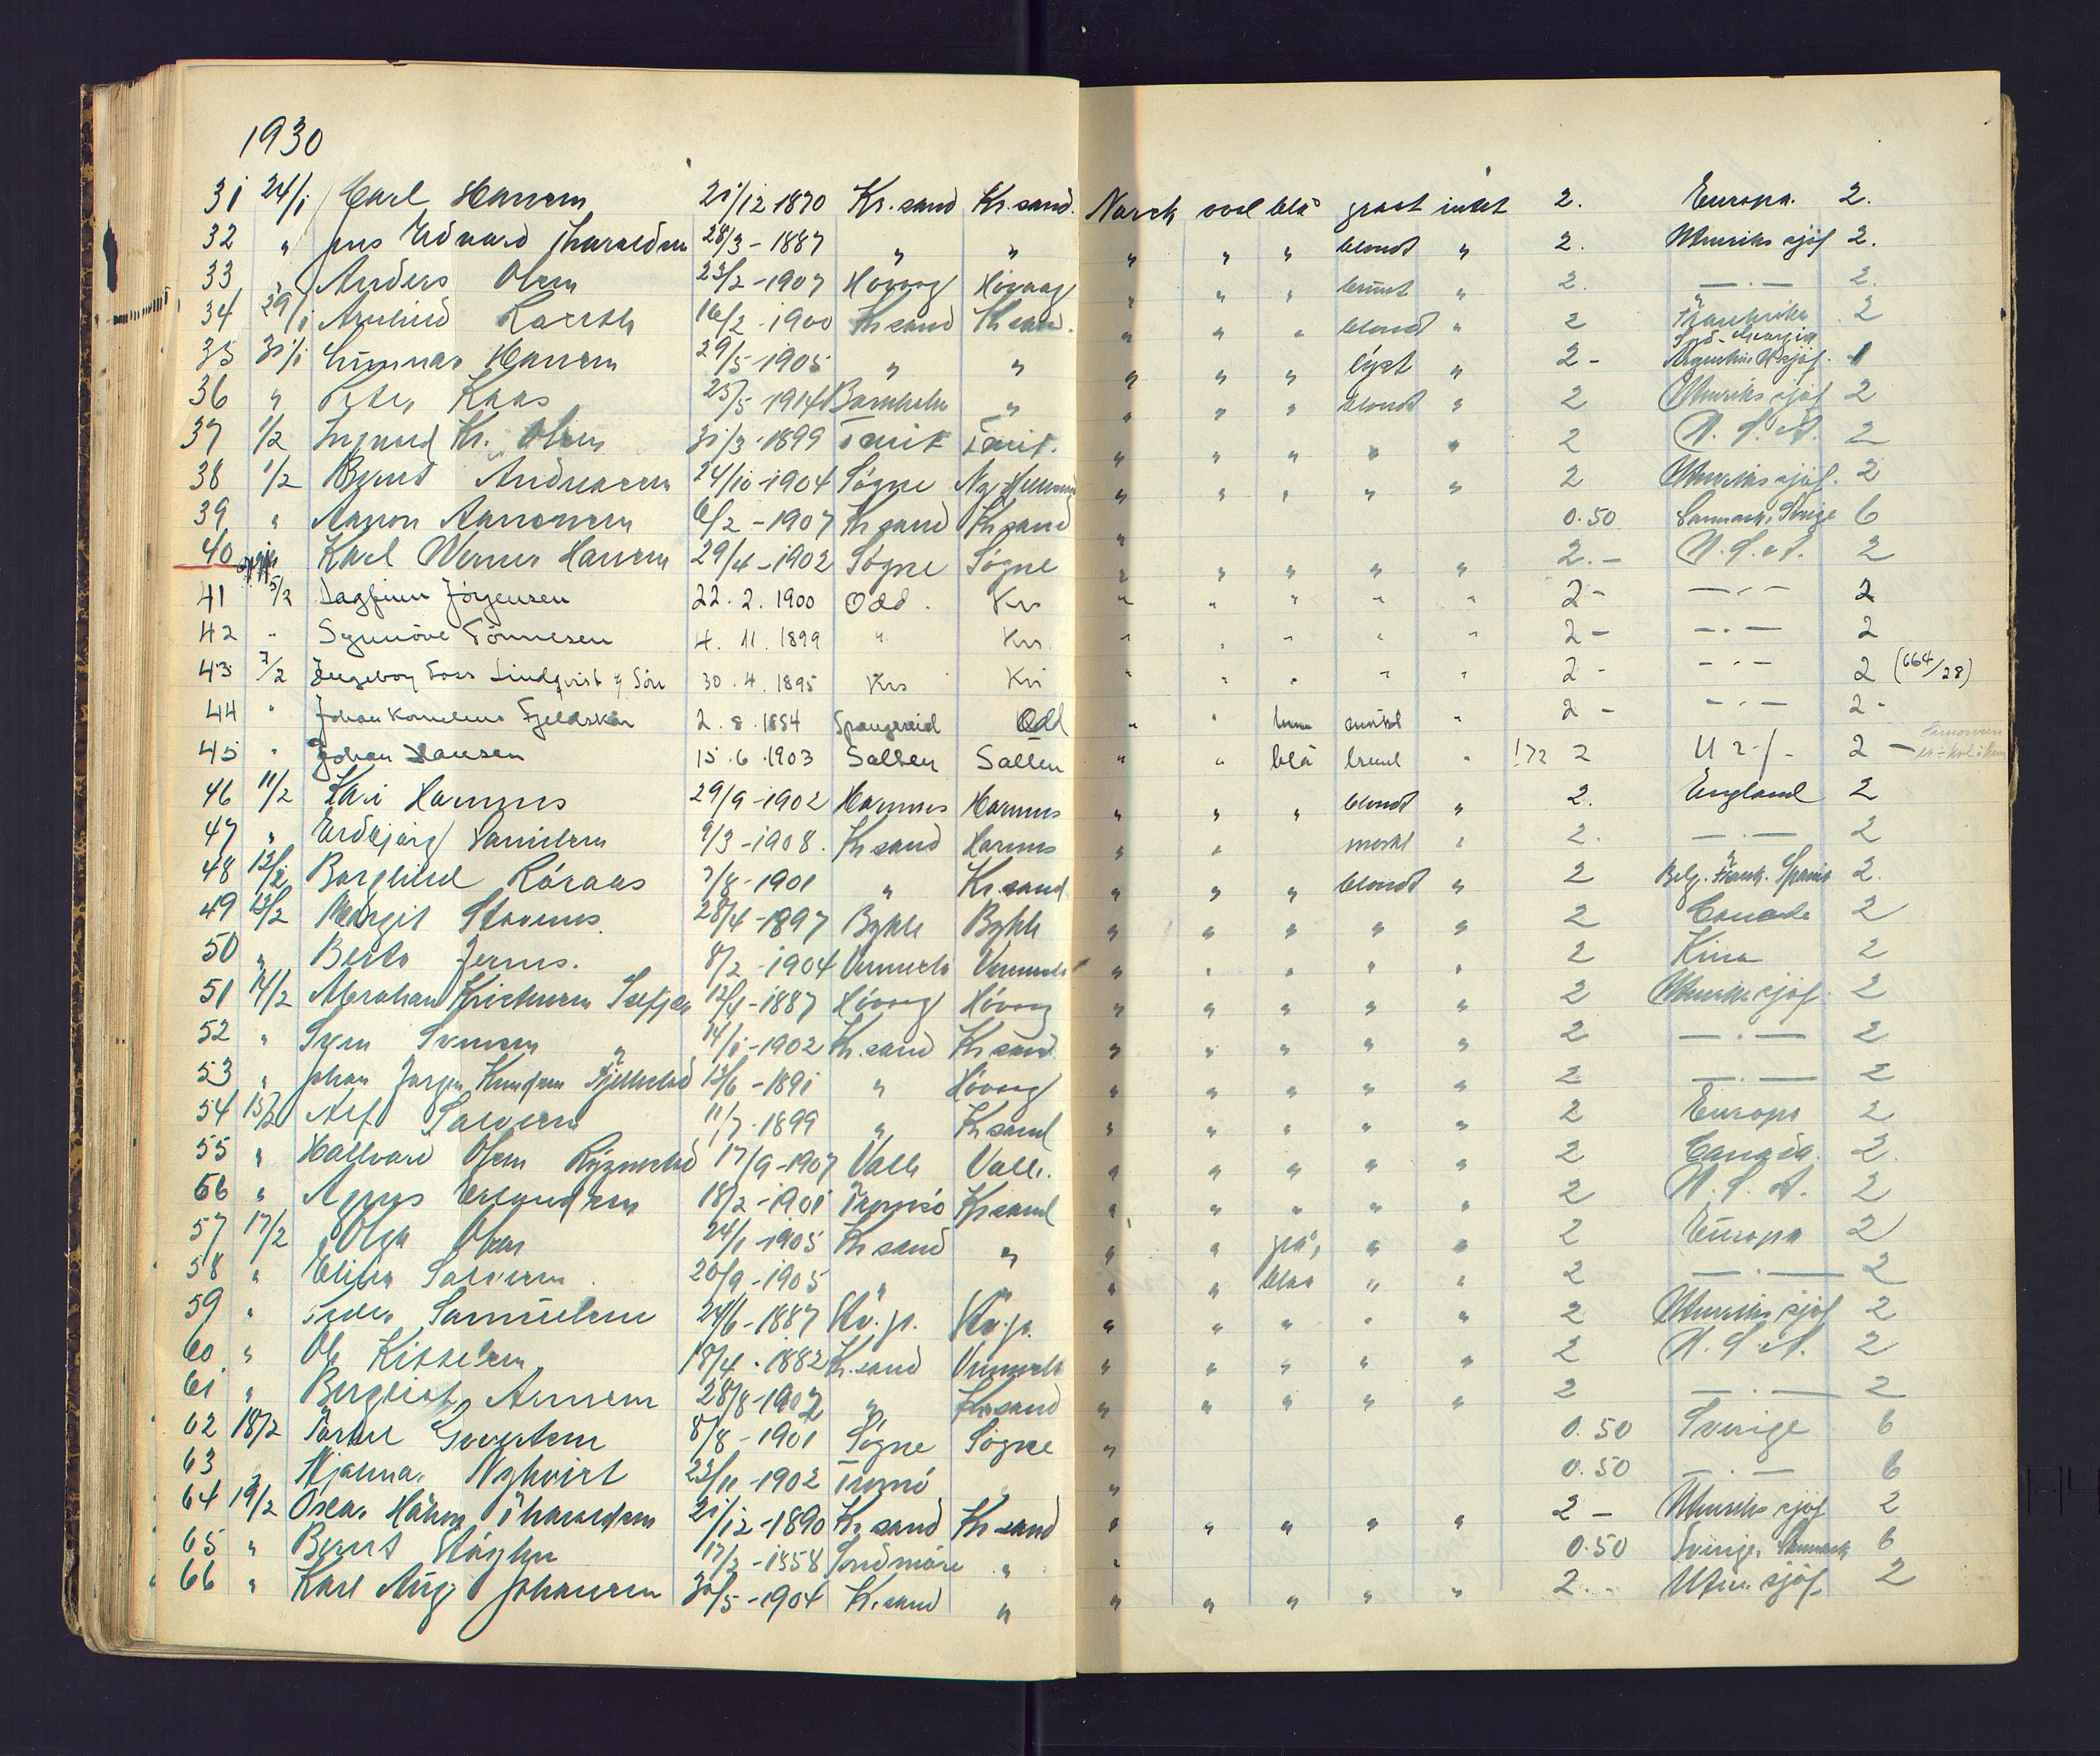 1930
31 24/1 Carl Hansen 21/12 1870 Kr.sand Kr.sand. Norsk oval blå graat intet 2. Europa. 2.
32 " Jens Edvard Tharaldsen 28/3-1887 " " " " " blondt " 2. Utenriks sjöf 2.
33 " Anders Olsen 23/2-1907 Hövaag Hövaag " " " brunt " 2. —.— 2.
34 29/1 16/2-1900 Kr sand Kr sand. " " " blondt " 2 2
35 31/1 Gunnar Hansen 29/5-1905 " " " " " lyst " 2- Syd-Georgia Argentina Usjöf. 1
36 " Peter Kaas 25/5-1914 Bornholm " " " " blondt " 2 Utenriks sjöf 2
37 1/2 Kr. Olsen 31/3-1899 Tveit Tveit. " " " " " 2 U.S.A. 2
38 1/2 Bernt Andreassen 24/10-1904 Søgne Ny-Hellesund " " " " " 2 Utenriks sjöf. 2
39 " Aanon Aanonsen 6/2-1907 Kr sand Kr sand " 0.50 Danmark, Sverige 6
40 Karl Werner Hansen 29/4-1902 Søgne Søgne " " " " " 2.- U.S.A. 2
41 5/2 Dagfinn Jörgensen 22.2.1900 Odd. Krs " " " " " 2- —.— 2
42 " Synnöve Tönnesen 4.11.1899 " Krs. " " " " " 2- —.— 2
43 7/2 Ingeborg Foss Lindqvist f. Sörn 30.4.1895 Krs Krs " " " " " 2- —.— 2 (664/28)
44 " Johan Kornelius Fjeldskår 2.8.1884 Spangereid Odd " " brune mörkt " 2- —.— 2-
45 " Johan Hansen 15.6.1903 Sætten Sætten " " blå brunt " !72 2 U2-f- 2-
46 11/2 Kari Harnes 29/9-1902 Harnes Harnes " " " blondt " 2. England 2
47 " Erdbjörg Danielsen 9/3-1908. Kr sand Harnes " " mörkt " 2. —.— 2
48 12/2 Borghild Röraas 7/8-1901 " Kr.sand " " " blondt " 2 Belg. Frank. Spania 2.
49 13/2 Margit Stavenes. 28/4-1897 Bykle Bykle " " " " " 2 Canada 2
50 " Berta Jernes. 8/2-1904 Vennesla Vennesla " " " " " 2 Kina 2
51 14/2 Abraham Kristensen 12/4-1887 Hövaag Hövaag " " " " " 2 Utenriks sjöf. 2
52 " Sven Svensen 14/1-1902 Kr.sand Kr sand " " " " " 2 —.— 2
53 " Johan Jörgen Knudsen Fjellestad 13/6-1891 " Hövaag " " " " " 2 —.— 2
54 15/2 Alf Salvesen 11/7-1899 " Kr sand " " " " " 2 Europa 2
55 " Hallvard Olsen Rysstad 17/9-1907 Valle Valle. " " " " " 2 Canada. 2.
56 " Agnes Erlandsen 18/2-1901 Tromsö Kr sand " " " " " 2 U.S.A. 2
57 17/2 Olga Olsen 24/1-1905 Kr sand " " " grå, " " 2 Europa 2
58 " Elise Salvesen. 20/9-1905 " " " " blaa " " 2 —.— 2
59 " Peder Samuelsen 24/6-1887 Kv.p. Kv.p. " " " " " 2 Utenriks sjöf 2
60 " Ole Kittelsen 18/4.1882 Kr.sand Vennesla " " " " " 2 U.S.A. 2
61 " Bergliot Arnesen 28/8-1902 " Kr.sand " " " " " 2 —.— 2
62 18/2 8/8-1901 Søgne Søgne " 0.50 Sverige 6
63 Hjalmar Nykvist 23/11-1902 Tromö " " 0.50 —.— 6
64 19/2 Oscar Håkon Tharaldsen 21/12-1890 Kr sand Kr sand " " " " " 2- Utenriks sjöf 2
65 " Bernt 17/2-1858 Söndmöre " " 0.50 Sverige, Danmark 6
66 " Karl Aug Johansen 30/5-1904 Kr.sand " " " " " " 2.- Uten. sjöf. 2